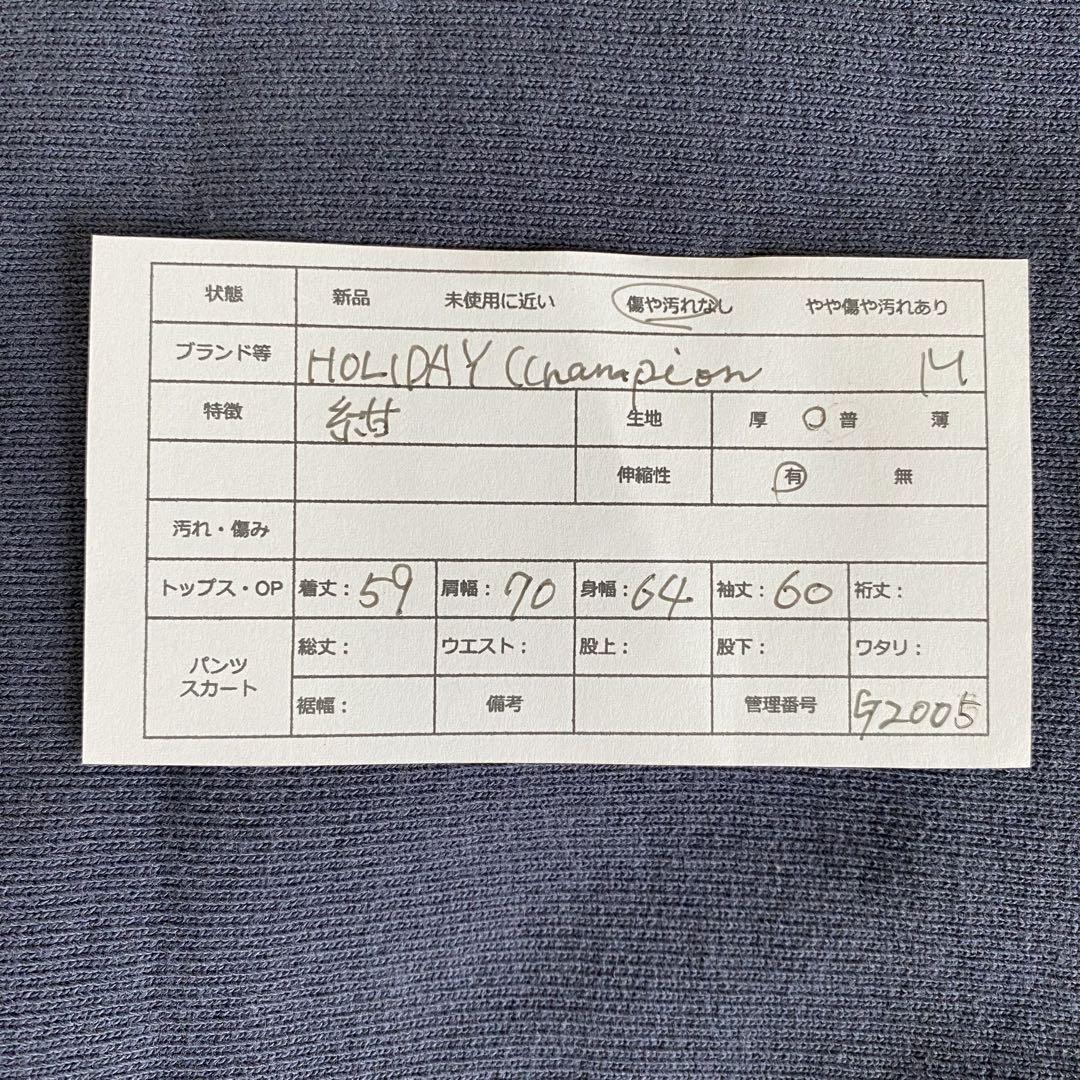 状態 新品 未使用に近い 傷や汚れなし やや傷や汚れあり
ブランド等 HOLIDAY CChampion M
特徴 紺 生地 厚 普 薄
伸縮性 有 無
汚れ・傷み
トップス・OP 着丈：59 肩幅：70 身幅：64 袖丈：60 裄丈：
パンツ スカート 総丈： ウエスト： 股上： 股下： ワタリ：
裾幅： 備考 管理番号 G2005